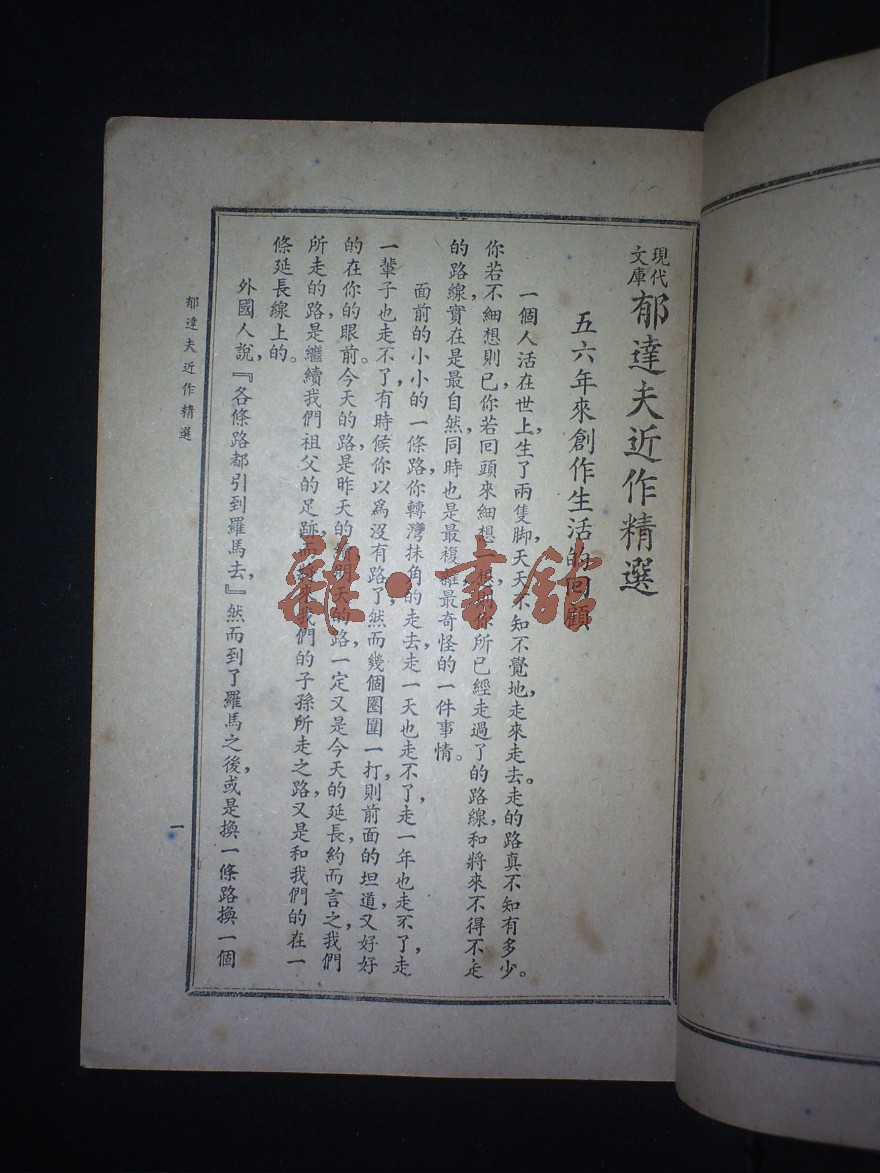 現代
文庫
郁達夫近作精選
五六年來創作生活的回顧
一個人活在世上，生了兩隻脚，天天不知不覺地，走來走去。走的路真不知有多少。
你若不細想則已，你若回頭來細想一想，則你所已經走過了的路線，和將來不得不走
的路線，實在是最自然，同時也是最複雜最奇怪的一件事情。
面前的小小的一條路，你轉灣抹角的走去，走一天也走不了，走一年也走不了，走
一輩子也走不了，有時候你以爲沒有路了，然而幾個圈圍一打，則前面的坦道，又好好
的在你的眼前。今天的路，是昨天的，明天的路，一定又是今天的延長，約而言之，我們
所走的路，是繼續我們祖父的足跡，而來我們的子孫所走之路，又是和我們的在一
條延長線上的。
外國人說，『各條路都引到羅馬去，』然而到了羅馬之後，或是換一條路換一個
郁達夫近作精選
一
雜·書館